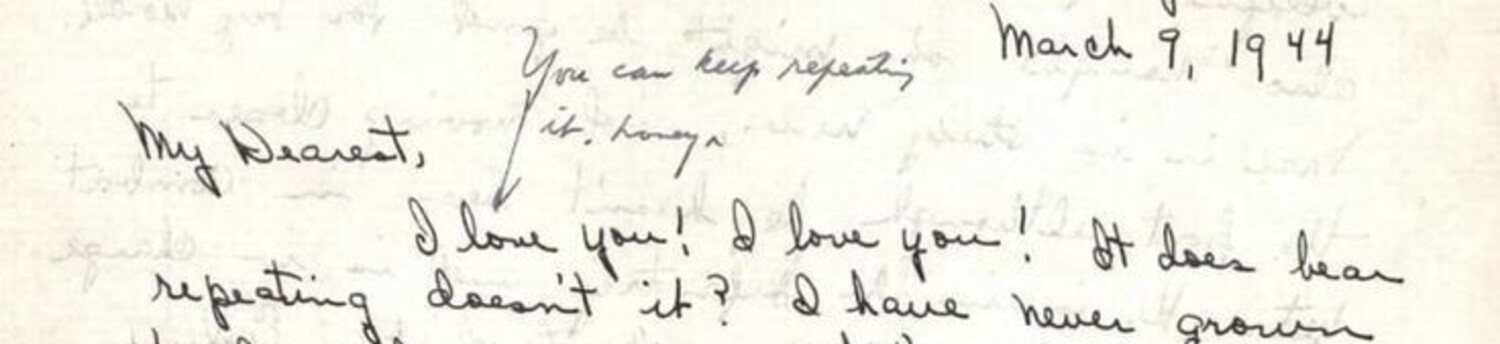 March 9, 1944
You can keep repeating
it, honey.
My Dearest,
I love you! I love you! It does bear
repeating doesn't it? I have never grown